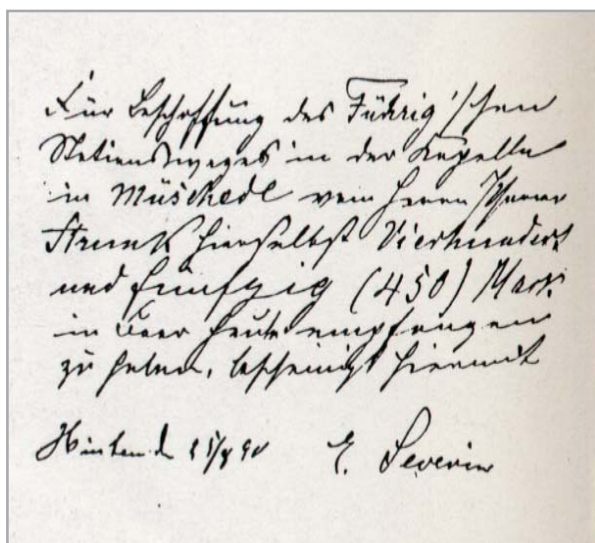 Für Beschaffung des Führig'schen
Stationsweges in der Kapelle
in Müschede vom Herrn Pfarrer
Strunk hierselbst Vierhundert
und fünfzig (450) Mark
in Baar heute empfangen
zu haben, bescheinigt hiermit
E. Severin